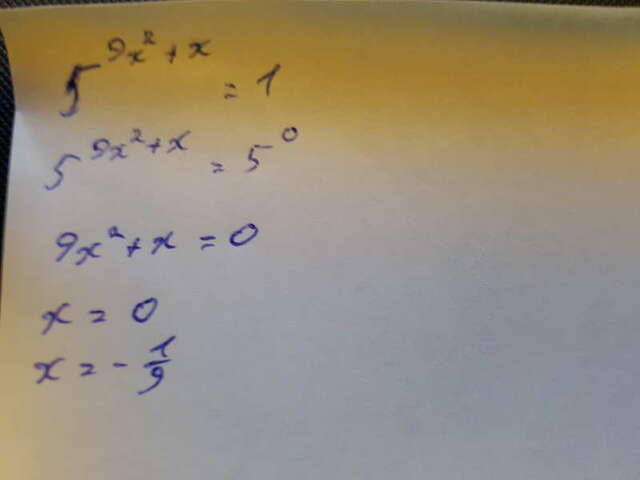 5^{9x^2+x} = 1
5^{9x^2+x} = 5^0
9x^2+x = 0
x = 0
x = -\frac{1}{9}